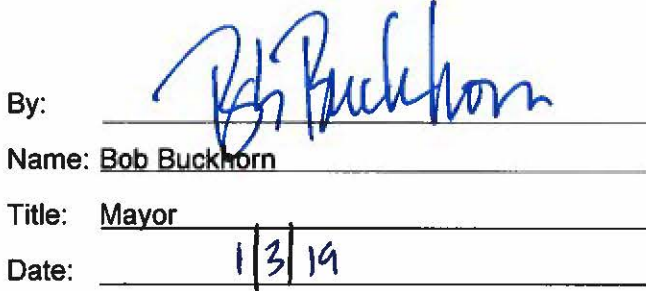 By: Bob Buckhorn
Name: Bob Buckhorn
Title: Mayor
Date: 1/3/19